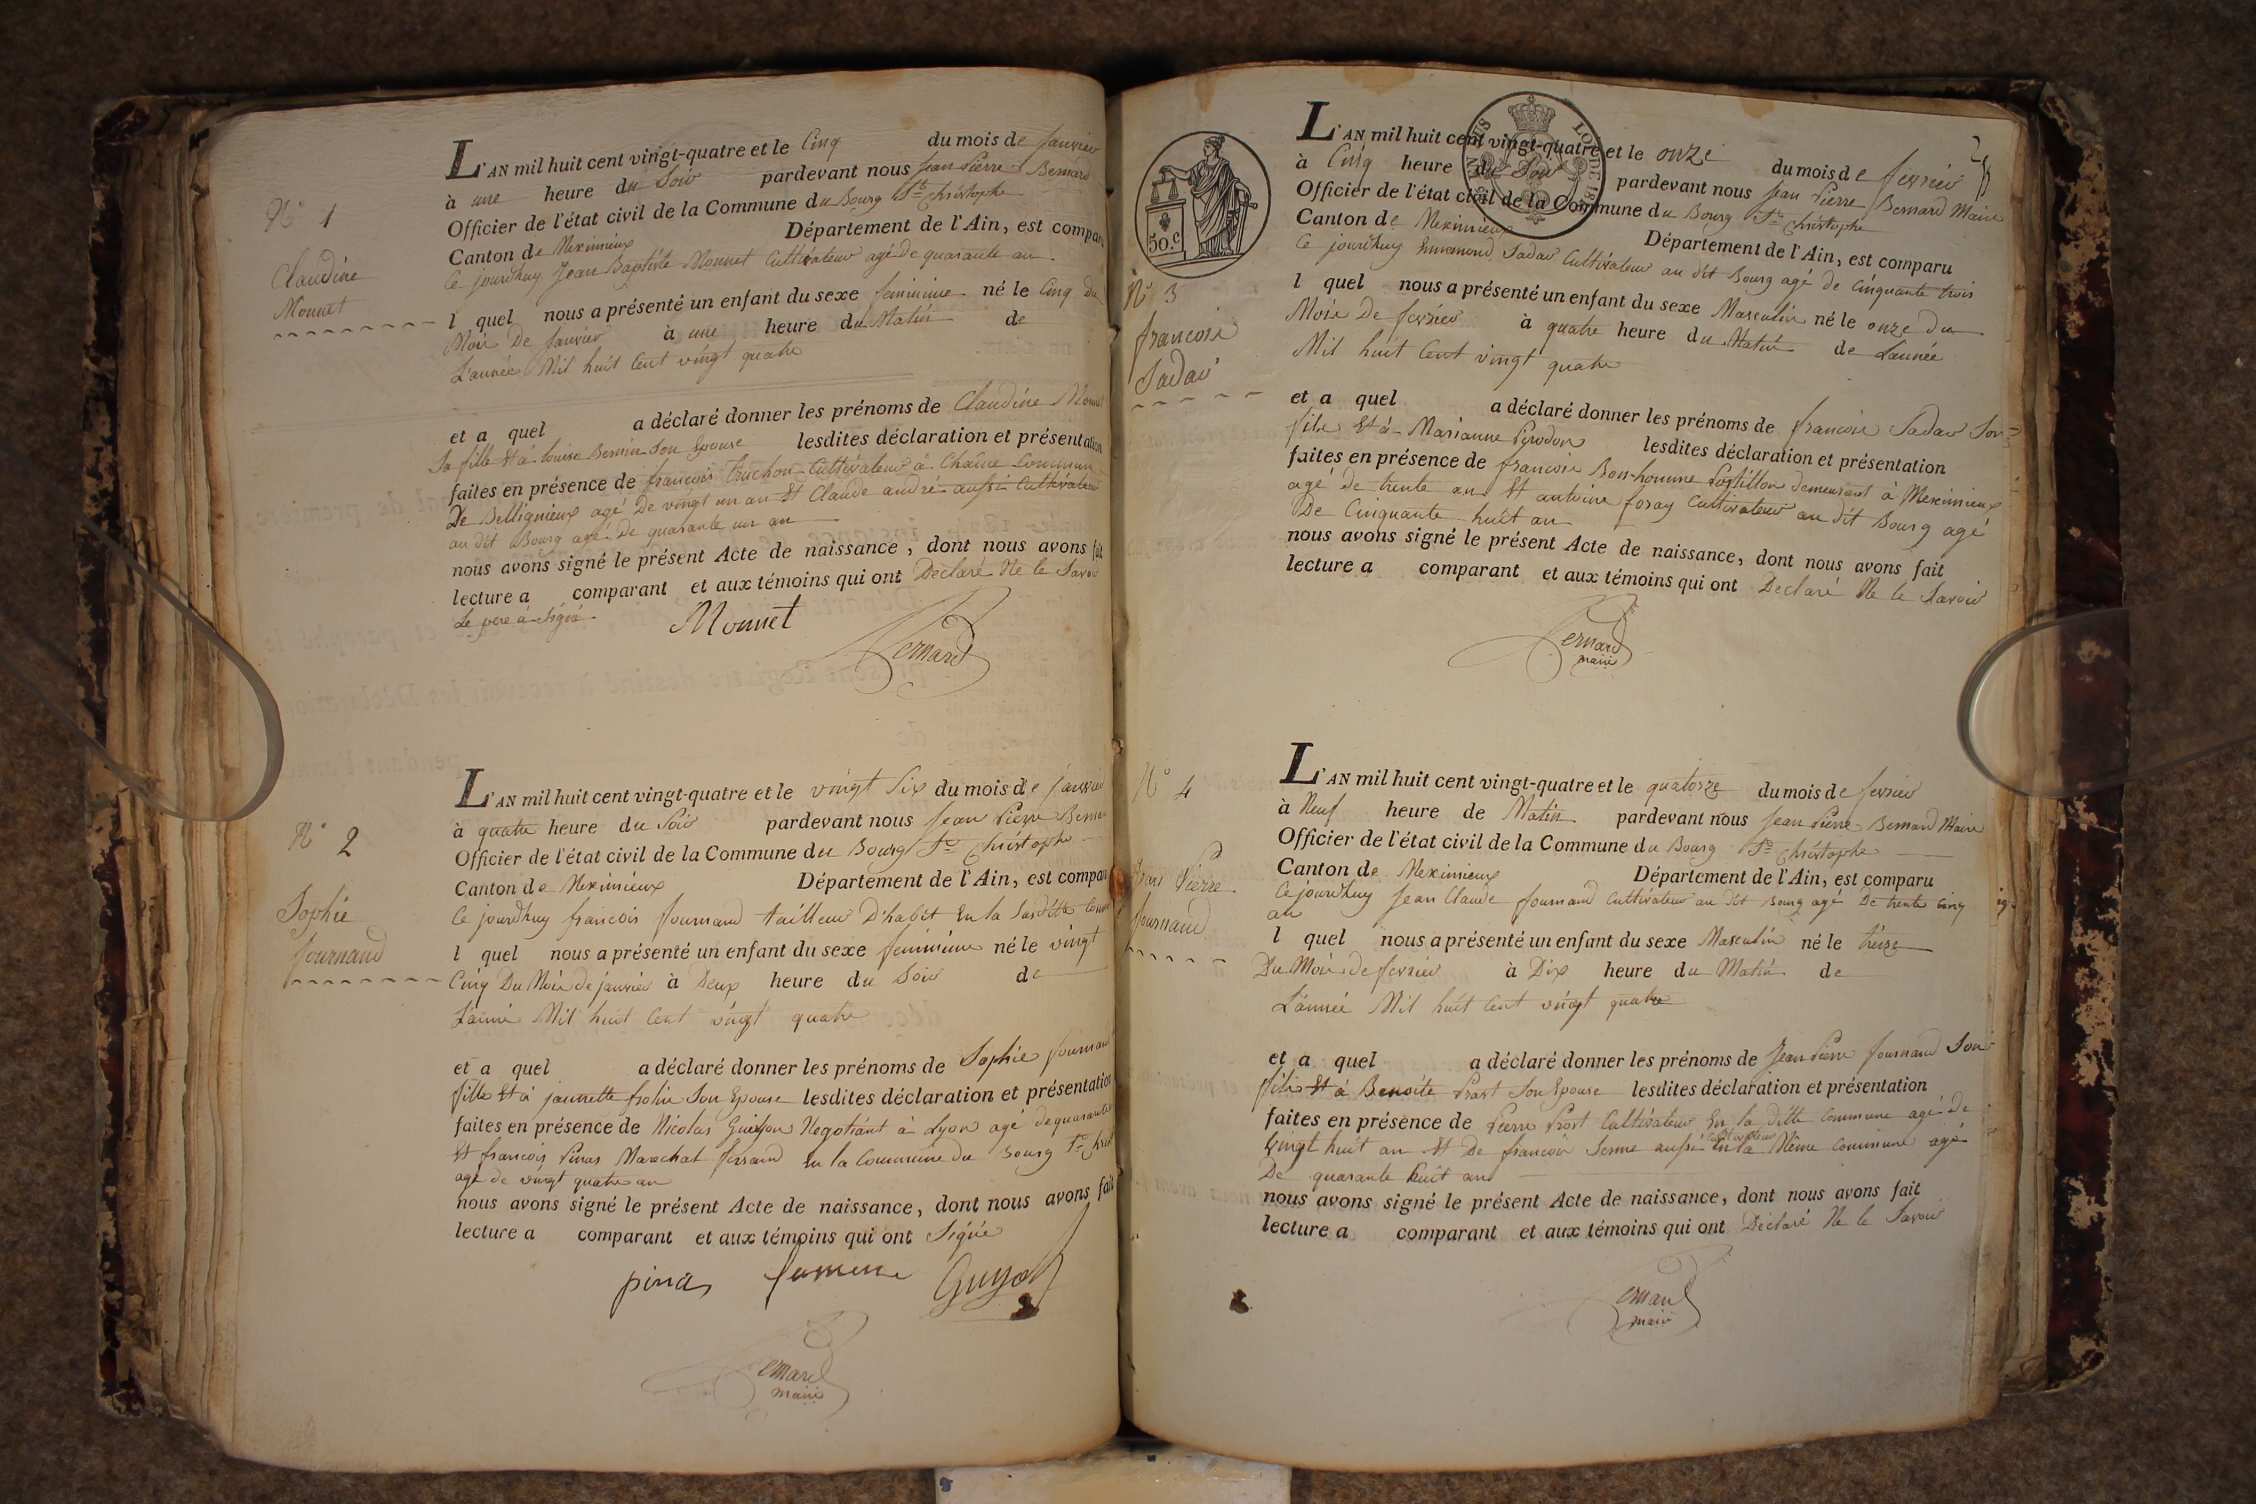 N° 1
Claudine
Monnet
L'AN mil huit cent vingt-quatre et le Cinq du mois de Janvier
à une heure du Soir pardevant nous Jean Pierre Bernard
Officier de l'état civil de la Commune du Bourg St Christophe
Canton de Meximieux Département de l'Ain, est comparu
Ce jourdhuy Jean Baptiste Monnet Cultivateur agé de quarante an
l quel nous a présenté un enfant du sexe feminine né le Cinq du
Mois De Janvier à une heure du Matin de
L'année Mil huit Cent vingt quatre
et a quel a déclaré donner les prénoms de Claudine Monnet
Sa fille Et à Louise Bernin Son Epouse lesdites déclaration et présentation
faites en présence de francois truchon Cultivateur à Commun
De Belligneux agé De vingt un an Et Claude andré aussi Cultivateur
au dit Bourg agé De quarante un an
nous avons signé le présent Acte de naissance, dont nous avons fait
lecture a comparant et aux témoins qui ont Declaré Ne le Savoir
Le pere à Signé
Monnet
Bernard
N° 2
Sophie
fournand
L'AN mil huit cent vingt-quatre et le vingt Six du mois de janvier
à quatre heure du Soir pardevant nous Jean Pierre Berna
Officier de l'état civil de la Commune du Bourg St Christophe
Canton de Meximieux Département de l'Ain, est compau
Ce jourdhuy francois fournand tailleur D'habit En la Susditte Comm
l quel nous a présenté un enfant du sexe feminine né le vingt
Cinq Du Mois de janvier à Deux heure du Soir de
L'année Mil huit Cent vingt quatre
et a quel a déclaré donner les prénoms de Sophie fournand
fille Et à jannette frolin Son Epouse lesdites déclaration et présentation
faites en présence de Nicolas Negotiant à Lyon agé dequarante
Et francois Pinas Marechal ferrand En la Commune du Bourg St Christ
agé de vingt quatre an
nous avons signé le présent Acte de naissance, dont nous avons fait
lecture a comparant et aux témoins qui ont Signé
pinas Guyon
Bernard
maire
50.C
N° 3
francois
Sadar
L'AN mil huit cent vingt-quatre et le onze du mois de fevrier
à Cinq heure du Soir pardevant nous Jean Pierre Bernard Maire
Officier de l'état civil de la Commune du Bourg St Christophe
Canton de Meximieux Département de l'Ain, est comparu
Ce jourdhuy Ennemond Sadar Cultivateur au dit Bourg agé de cinquante trois
l quel nous a présenté un enfant du sexe Masculin né le onze du
Mois De fevrier à quatre heure du Matin de L'année
Mil huit Cent vingt quatre
et a quel a déclaré donner les prénoms de francois Sadar Son
fils Et à Marianne Perodon lesdites déclaration et présentation
faites en présence de francois Bon-homme Postillon demeurant à Meximieux
agé de trente an Et antoine foray Cultivateur au dit Bourg agé
De Cinquante huit an
nous avons signé le présent Acte de naissance, dont nous avons fait
lecture a comparant et aux témoins qui ont Declaré Ne le Savoir
Bernard
maire
N° 4
Jean Pierre
fournand
L'AN mil huit cent vingt-quatre et le quatorze du mois de fevrier
à Neuf heure de Matin pardevant nous Jean Pierre Bernard Maire
Officier de l'état civil de la Commune du Bourg St Christophe
Canton de Meximieux Département de l'Ain, est comparu
Ce jourdhuy Jean Claude fournand Cultivateur au dit Bourg agé De trente cinq
an
l quel nous a présenté un enfant du sexe Masculin né le treize
Du Mois de fevrier à Dix heure du Matin de
L'année Mil huit Cent vingt quatre
et a quel a déclaré donner les prénoms de Jean Pierre fournand Son
fils Et à Benoite Prost Son Epouse lesdites déclaration et présentation
faites en présence de Pierre Prost Cultivateur En la ditte Commune agé De
vingt huit an Et De francois Serme aussi Cultivateur En la Même Commune agé
De quarante huit an
nous avons signé le présent Acte de naissance, dont nous avons fait
lecture a comparant et aux témoins qui ont Déclaré Ne le Savoir
Bernard
maire